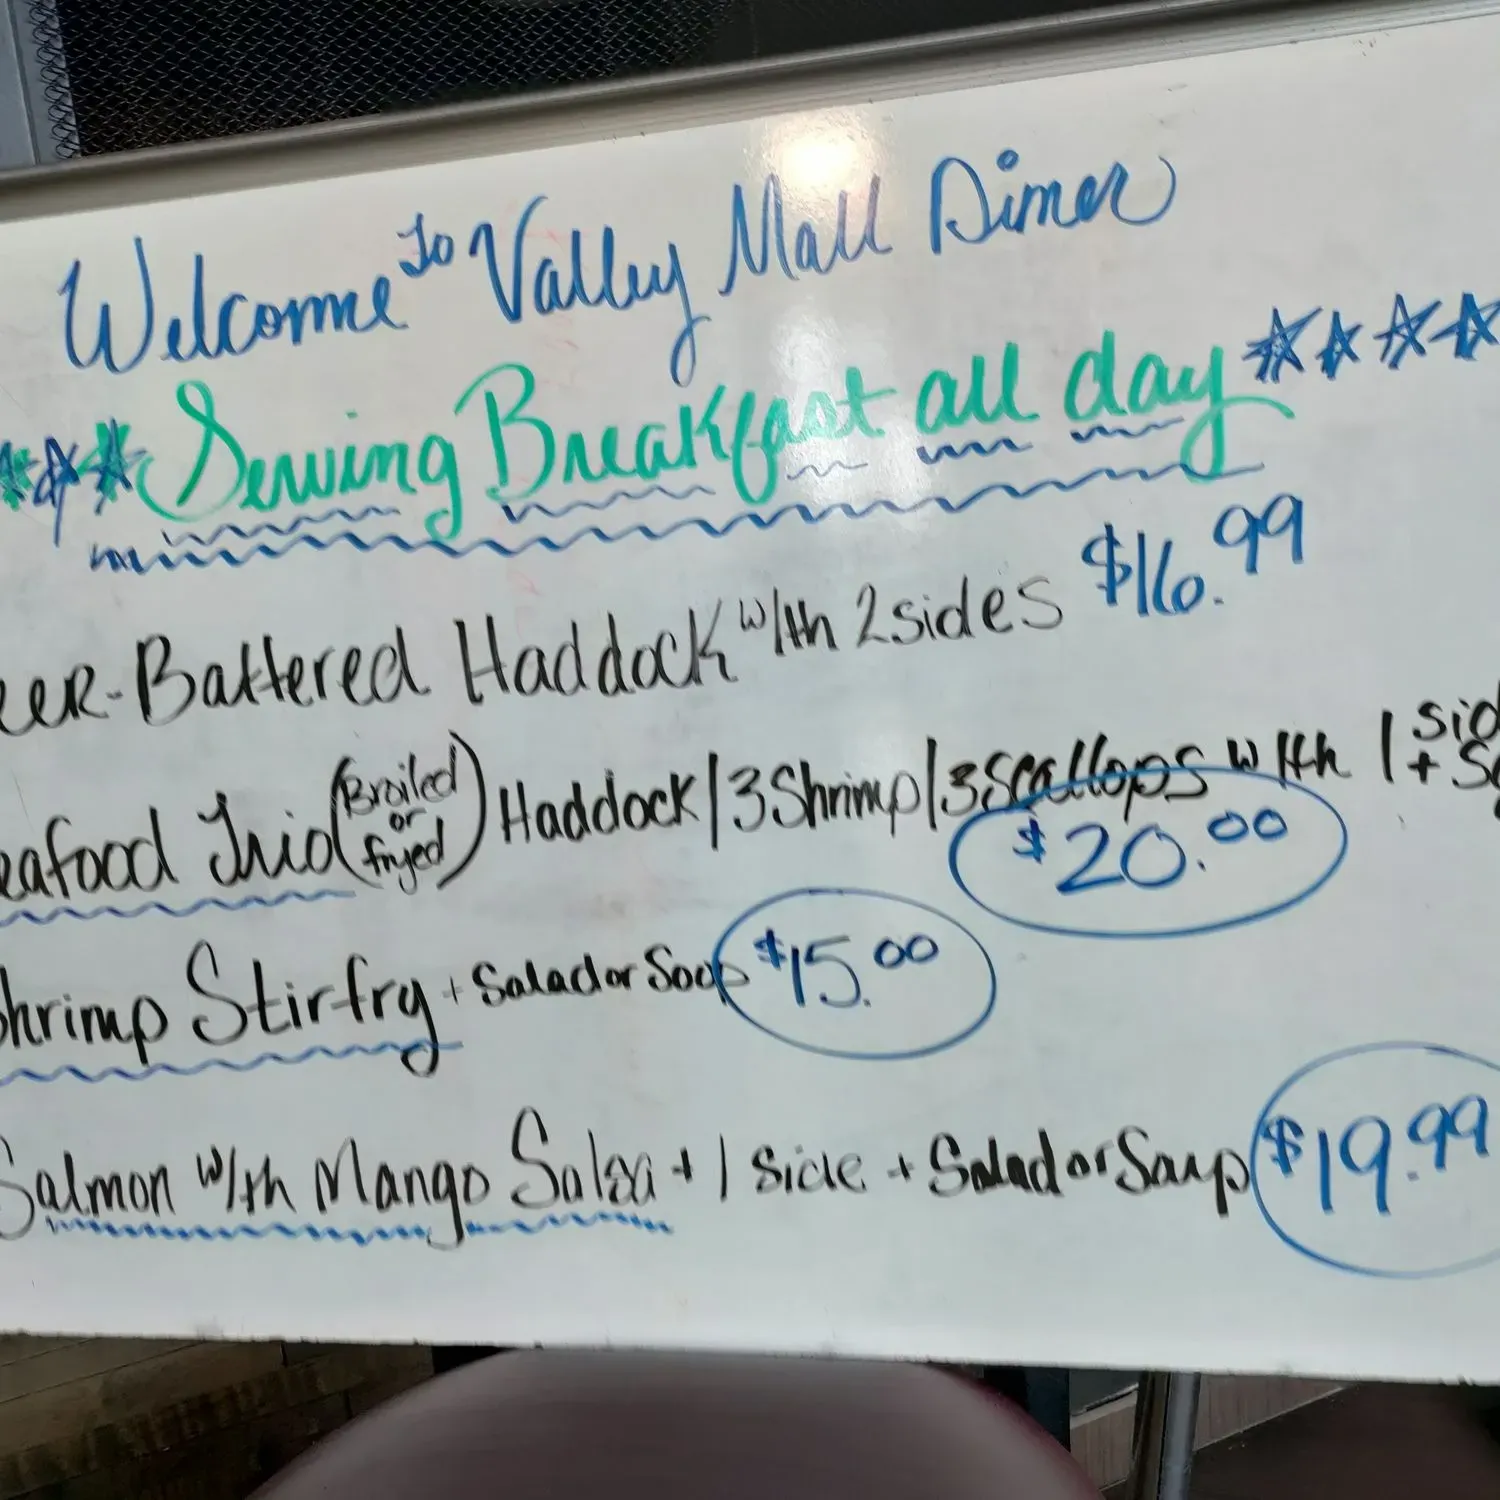 Welcome To Valley Mall Diner
Serving Breakfast all day
eer-Battered Haddock with 2 sides $16.99
eafood Trio (Broiled or fryed) Haddock/3 Shrimp/3 Scallops with 1 sid
+ S
$20.00
Shrimp Stirfry + Salad or Soup $15.00
Salmon with Mango Salsa + 1 side + Salad or Soup $19.99